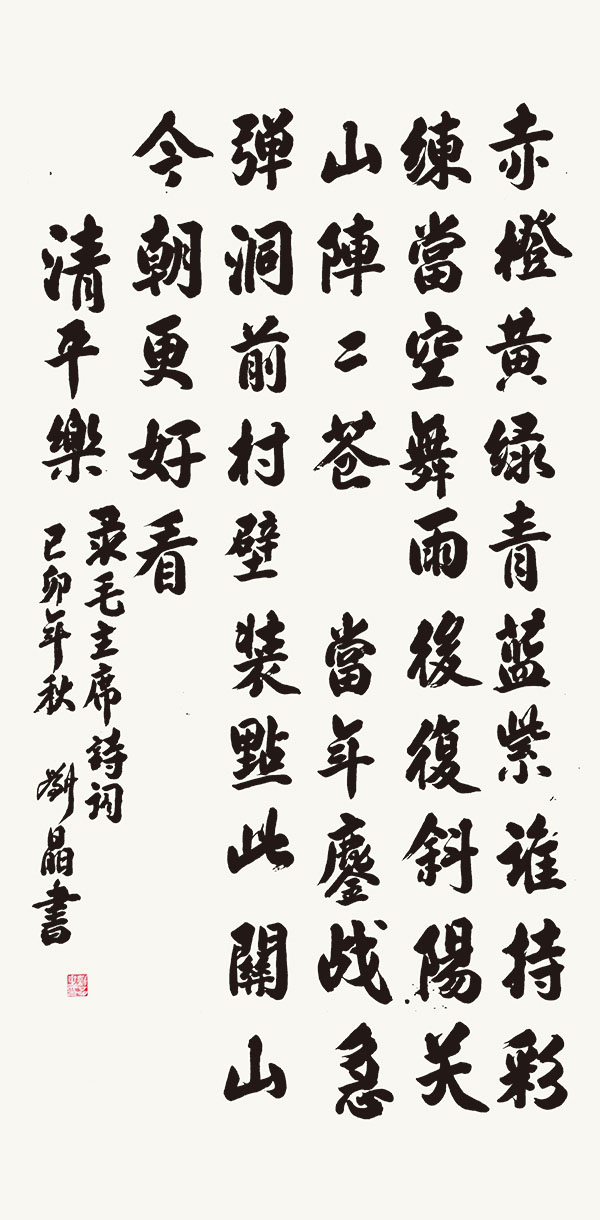 赤橙黄绿青蓝紫谁持彩
練當空舞雨後復斜陽关
山陣二苍 當年鏖战急
弹洞前村壁装點此關山
今朝更好看
清平樂
录毛主席詩词
己卯年秋 劉晶書